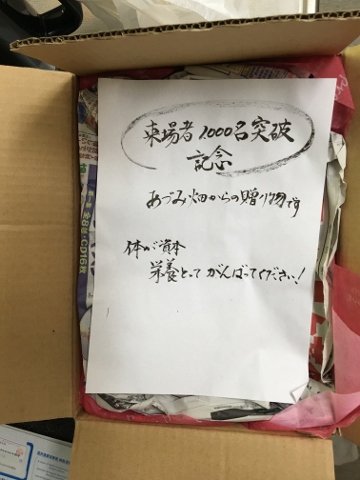 来場者1000名突破
記念
あづみ畑からの贈り物です
体が資本
栄養とって がんばってください!
全8枚・CD16枚